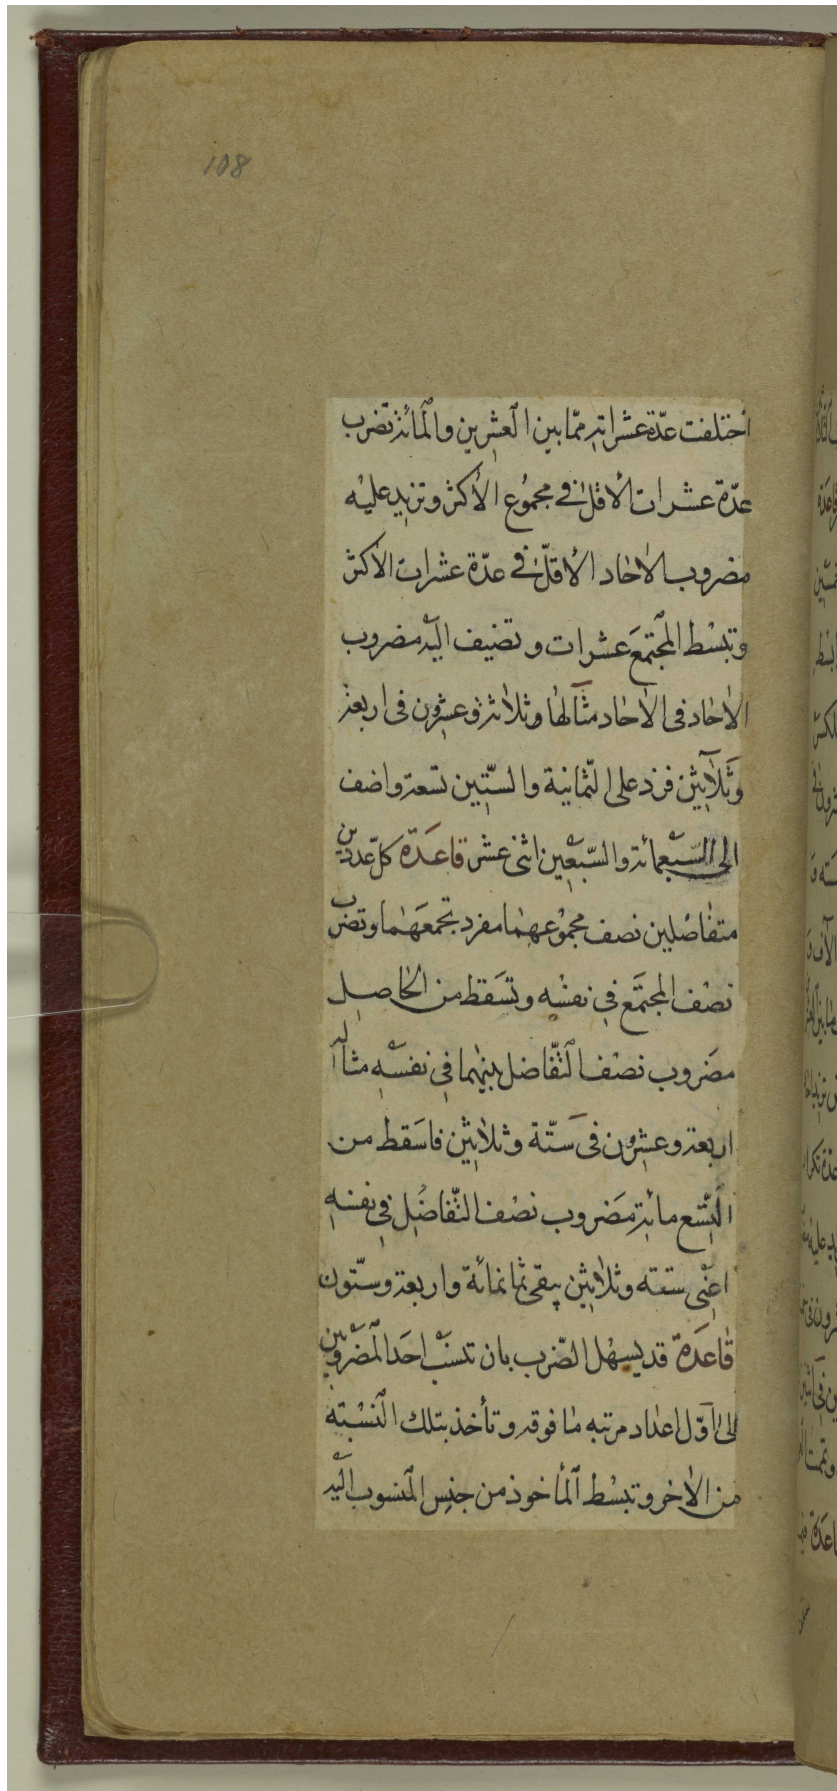 108
اختلفت عدّة عشراته ممّا بين العشرين والمائة تضرب
عدّة عشرات الاقل في مجموع الأكثر وتزيد عليه
مضروب الاحاد الأقلّ في عدّة عشرات الاكثر
وتبسط المجتمع عشرات وتضيف اليه مضروب
الاحاد في الاحاد مثالها وثلاثة وعشرون في اربعة
وثلاثين فزد على الثمانية والستّين تسعة واضف
الى السبعمائة والسّبعين اثنى عشر قاعدة كلّ عددين
متفاضلين نصف مجموعهما مفرد تجمعهما وتضرب
نصف المجتمع في نفسه وتسقط من الحاصل
مضروب نصف التّفاضل بينهما في نفسه مثاله
اربعة وعشرون في ستّة وثلاثين فاسقط من
التّسع مائة مضروب نصف التّفاضل في نفسه
اعنى ستته وثلاثين يبقى ثمانمائة واربعة وستّون
قاعدة قد يسهل الضّرب بان تنسب احد المضروبين
الى اوّل اعداد مرتبه ما فوقه وتأخذ بتلك النّسبته
من الاخر وتبسط المأخوذ من جنس المنسوب اليه